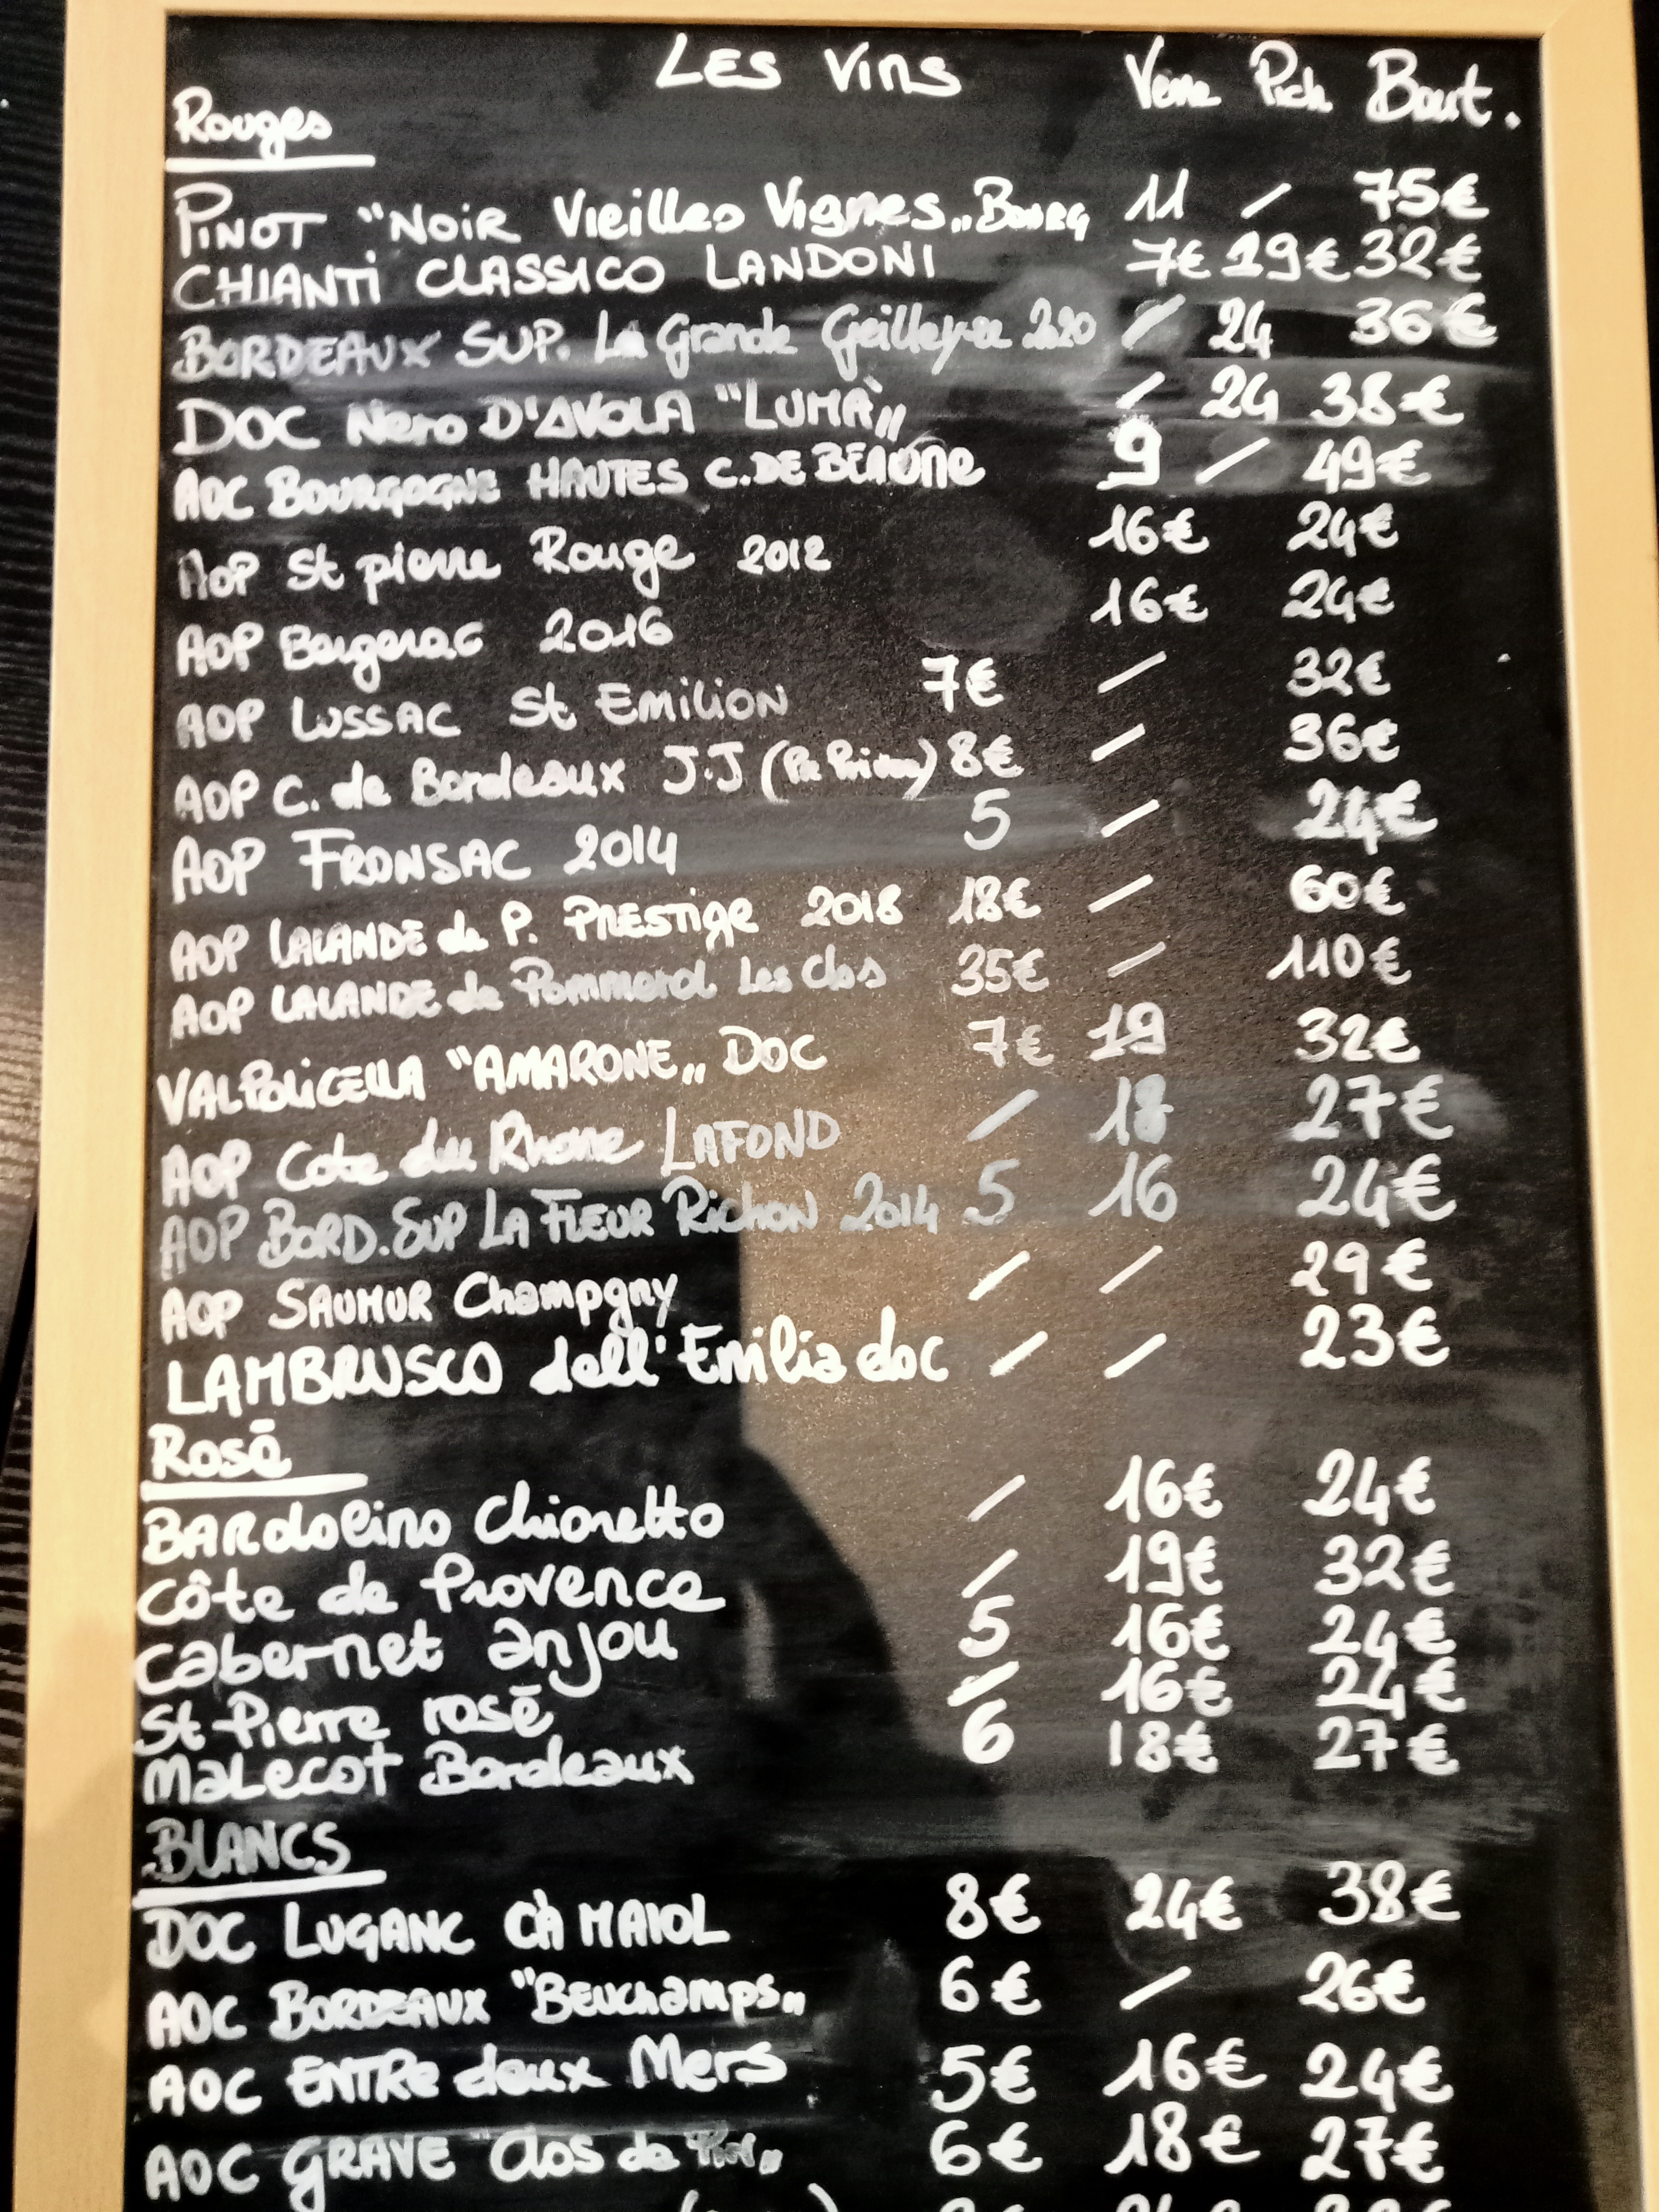 LES Vins Verre Pich Bout.
Rouges
PINOT "NOIR Vieilles Vignes" Bourg 11 / 75€
CHIANTI CLASSICO LANDONI 7€ 19€ 32€
BORDEAUX SUP. La Grande 2020 / 24 36€
DOC Nero D'AVOLA "LUMÀ" / 24 38€
AOC BOURGOGNE HAUTES C. DE BEAUNE 9 / 49€
AOP St pierre Rouge 2012 16€ 24€
AOP Bergerac 2016 16€ 24€
AOP LUSSAC St EMILION 7€ / 32€
AOP C. de Bordeaux J.J 8€ / 36€
AOP FRONSAC 2014 5 / 24€
AOP LALANDE de P. PRESTige 2018 18€ / 60€
AOP LALANDE de Pommerol Les Clos 35€ / 110€
VALPOLICELLA "AMARONE" DOC 7€ 19 32€
AOP Cote du Rhone LAFOND / 18 27€
AOP BORD. SUP LA FLEUR RICHON 2014 5 16 24€
AOP SAUMUR Champgny / / 29€
LAMBRUSCO dell'Emilia doc / / 23€
Rosé
BARdolino Chiaretto / 16€ 24€
Côte de Provence / 19€ 32€
Cabernet anjou 5 16€ 24€
St Pierre rosé / 16€ 24€
MaLecot Bordeaux 6 18€ 27€
BLANCS
DOC LUGANC CÀ MAIOL 8€ 24€ 38€
AOC BORDEAUX "Beuchamps" 6€ / 26€
AOC ENTRe deux Mers 5€ 16€ 24€
AOC GRAVE "Clos de 6€ 18€ 27€